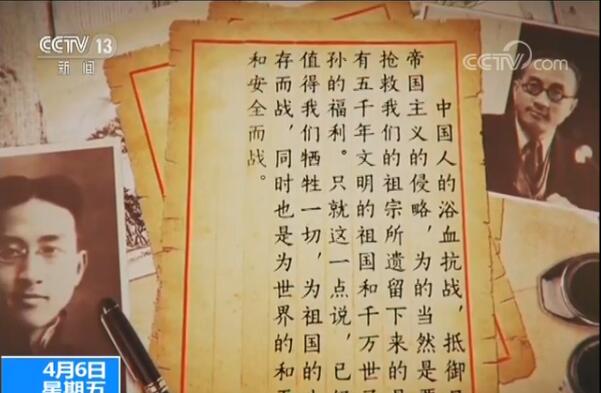 CCTV 13
新闻
CCTV.com
中国人的浴血抗战，抵御
帝国主义的侵略，为的当然是
抢救我们的祖宗所遗留下来的
有五千年文明的祖国和千万世
孙的福利。只就这一点说，已
值得我们牺牲一切，为祖国的
存而战，同时也是为世界的和
和安全而战。
4月6日
星期五